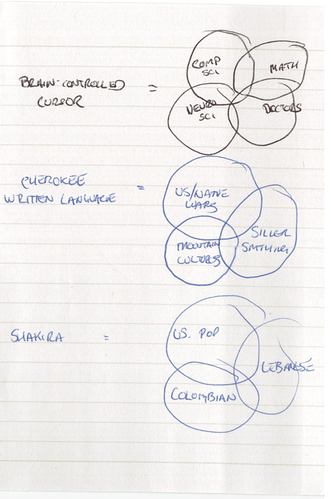 BRAIN-CONTROLLED
CURSOR
=
COMP
SCI
MATH
NEURO
SCI
DOCTORS
CHEROKEE
WRITTEN LANGUAGE
=
US/NATIVE
WARS
MOUNTAIN
CULTURES
SILVER
SMITHING
SHAKIRA
=
US. POP
LEBANESE
COLOMBIAN